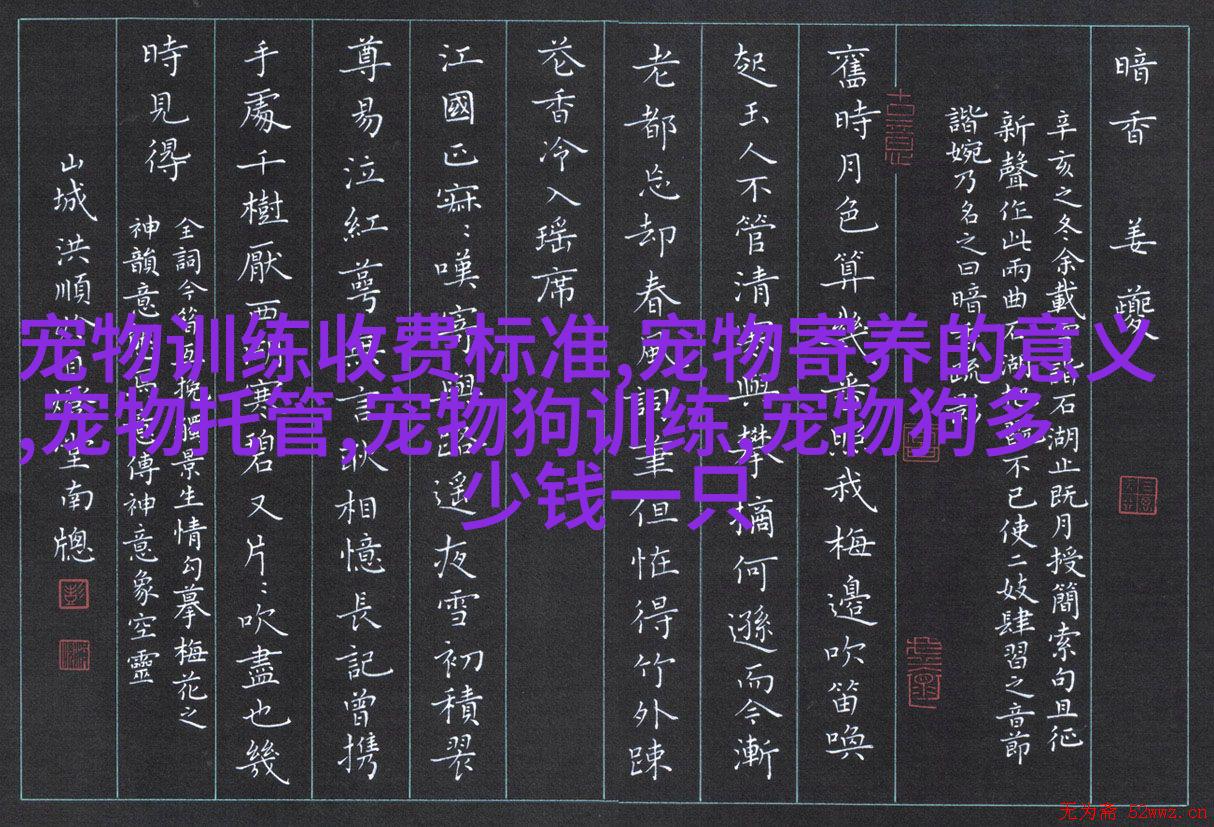 暗香 姜夔
辛亥之冬余載詣石湖止既月授簡索句且征
新聲作此兩曲石湖不已使二妓肆習之音節
諧婉乃名之曰暗疏
舊時月色算幾番照我梅邊吹笛喚
起玉人不管清與攀摘何遜而今漸
老都忘却春風詞筆但怪得竹外疎
花香冷入瑤席
江國正寂:嘆寄與路遙夜雪初積翠
尊易泣紅萼無言耿相憶長記曾携
手處千樹壓西寒碧又片:吹盡也幾
時見得
全詞今昔互挽景生情勾摹梅花之
神韻意傳神意象空靈
山城洪順堂南牕
古意
宠物训练收费标准,宠物寄养的意义
,宠物托管,宠物狗训练,宠物狗多
少钱一只
无为斋 52wwz.cn